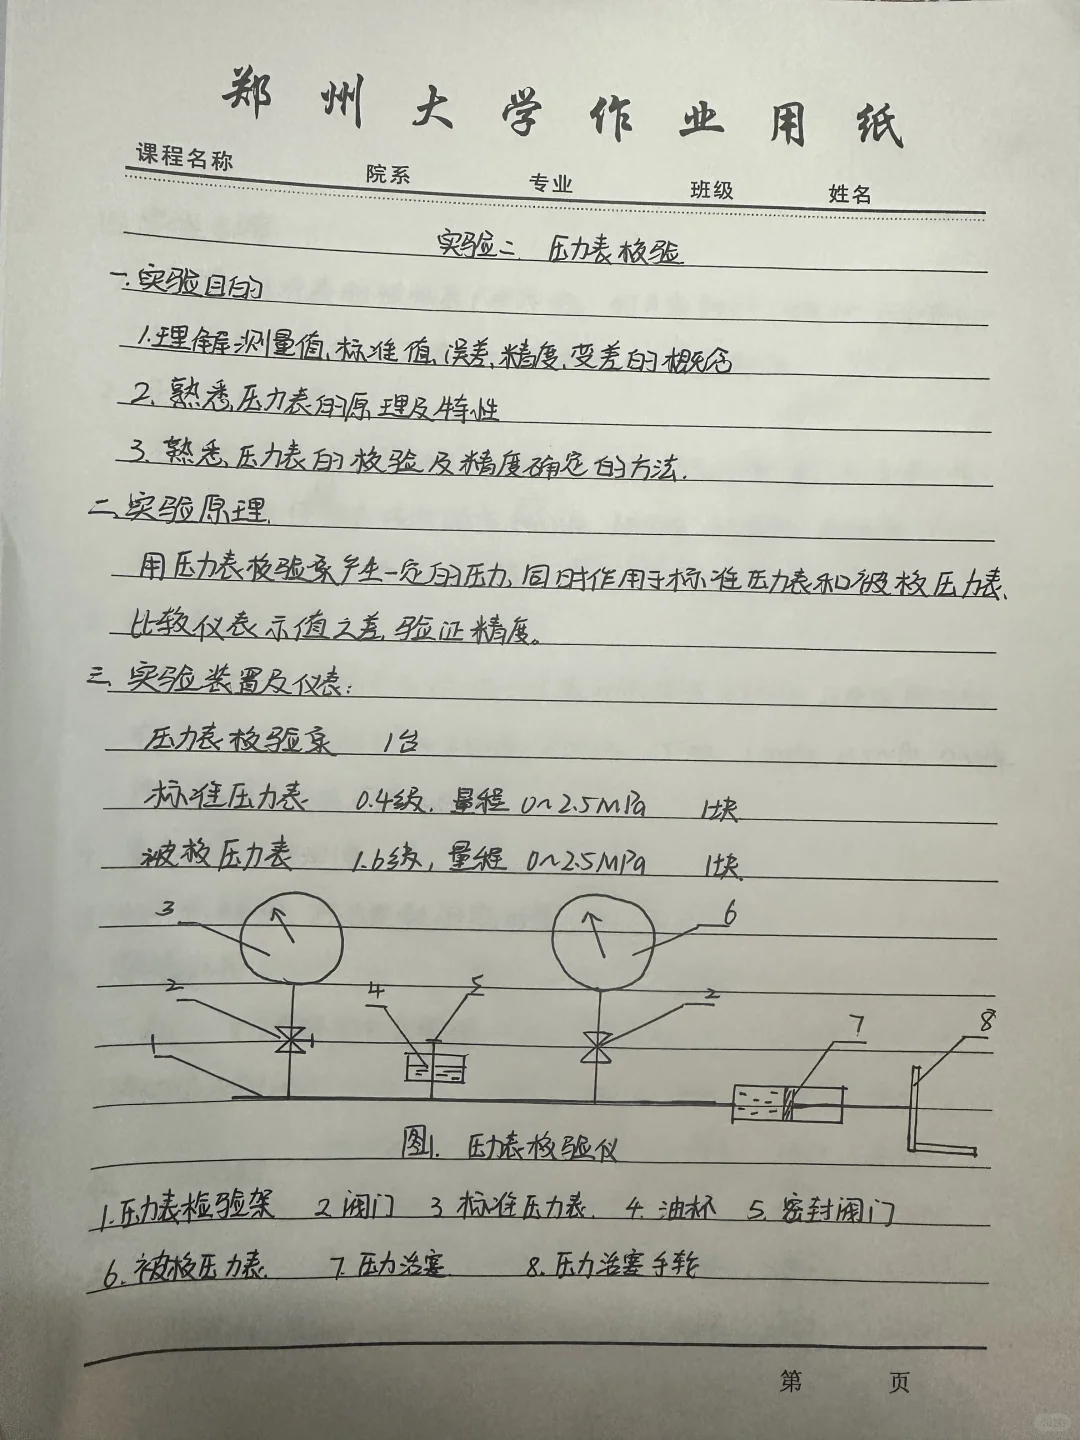 郑州大学作业用纸
课程名称 院系 专业 班级 姓名
实验二、压力表校验
一.实验目的
1.理解测量值、标准值、误差、精度、变差的概念
2.熟悉压力表的原理及特性
3.熟悉压力表的校验及精度确定的方法.
二、实验原理.
用压力表校验泵产生一定的压力,同时作用于标准压力表和被校压力表、
比较仪表示值之差,验证精度。
三、实验装置及仪表:
压力表校验泵 1台
标准压力表 0.4级.量程 0~2.5MPa 1块.
被校压力表 1.6级,量程 0~2.5MPa 1块.
3 6
2 4 5 2
1 7 8
图1. 压力表校验仪
1.压力表检验架 2 阀门 3 标准压力表. 4.油杯 5.密封阀门
6.被校压力表. 7.压力治塞 8.压力治塞手轮
第 页